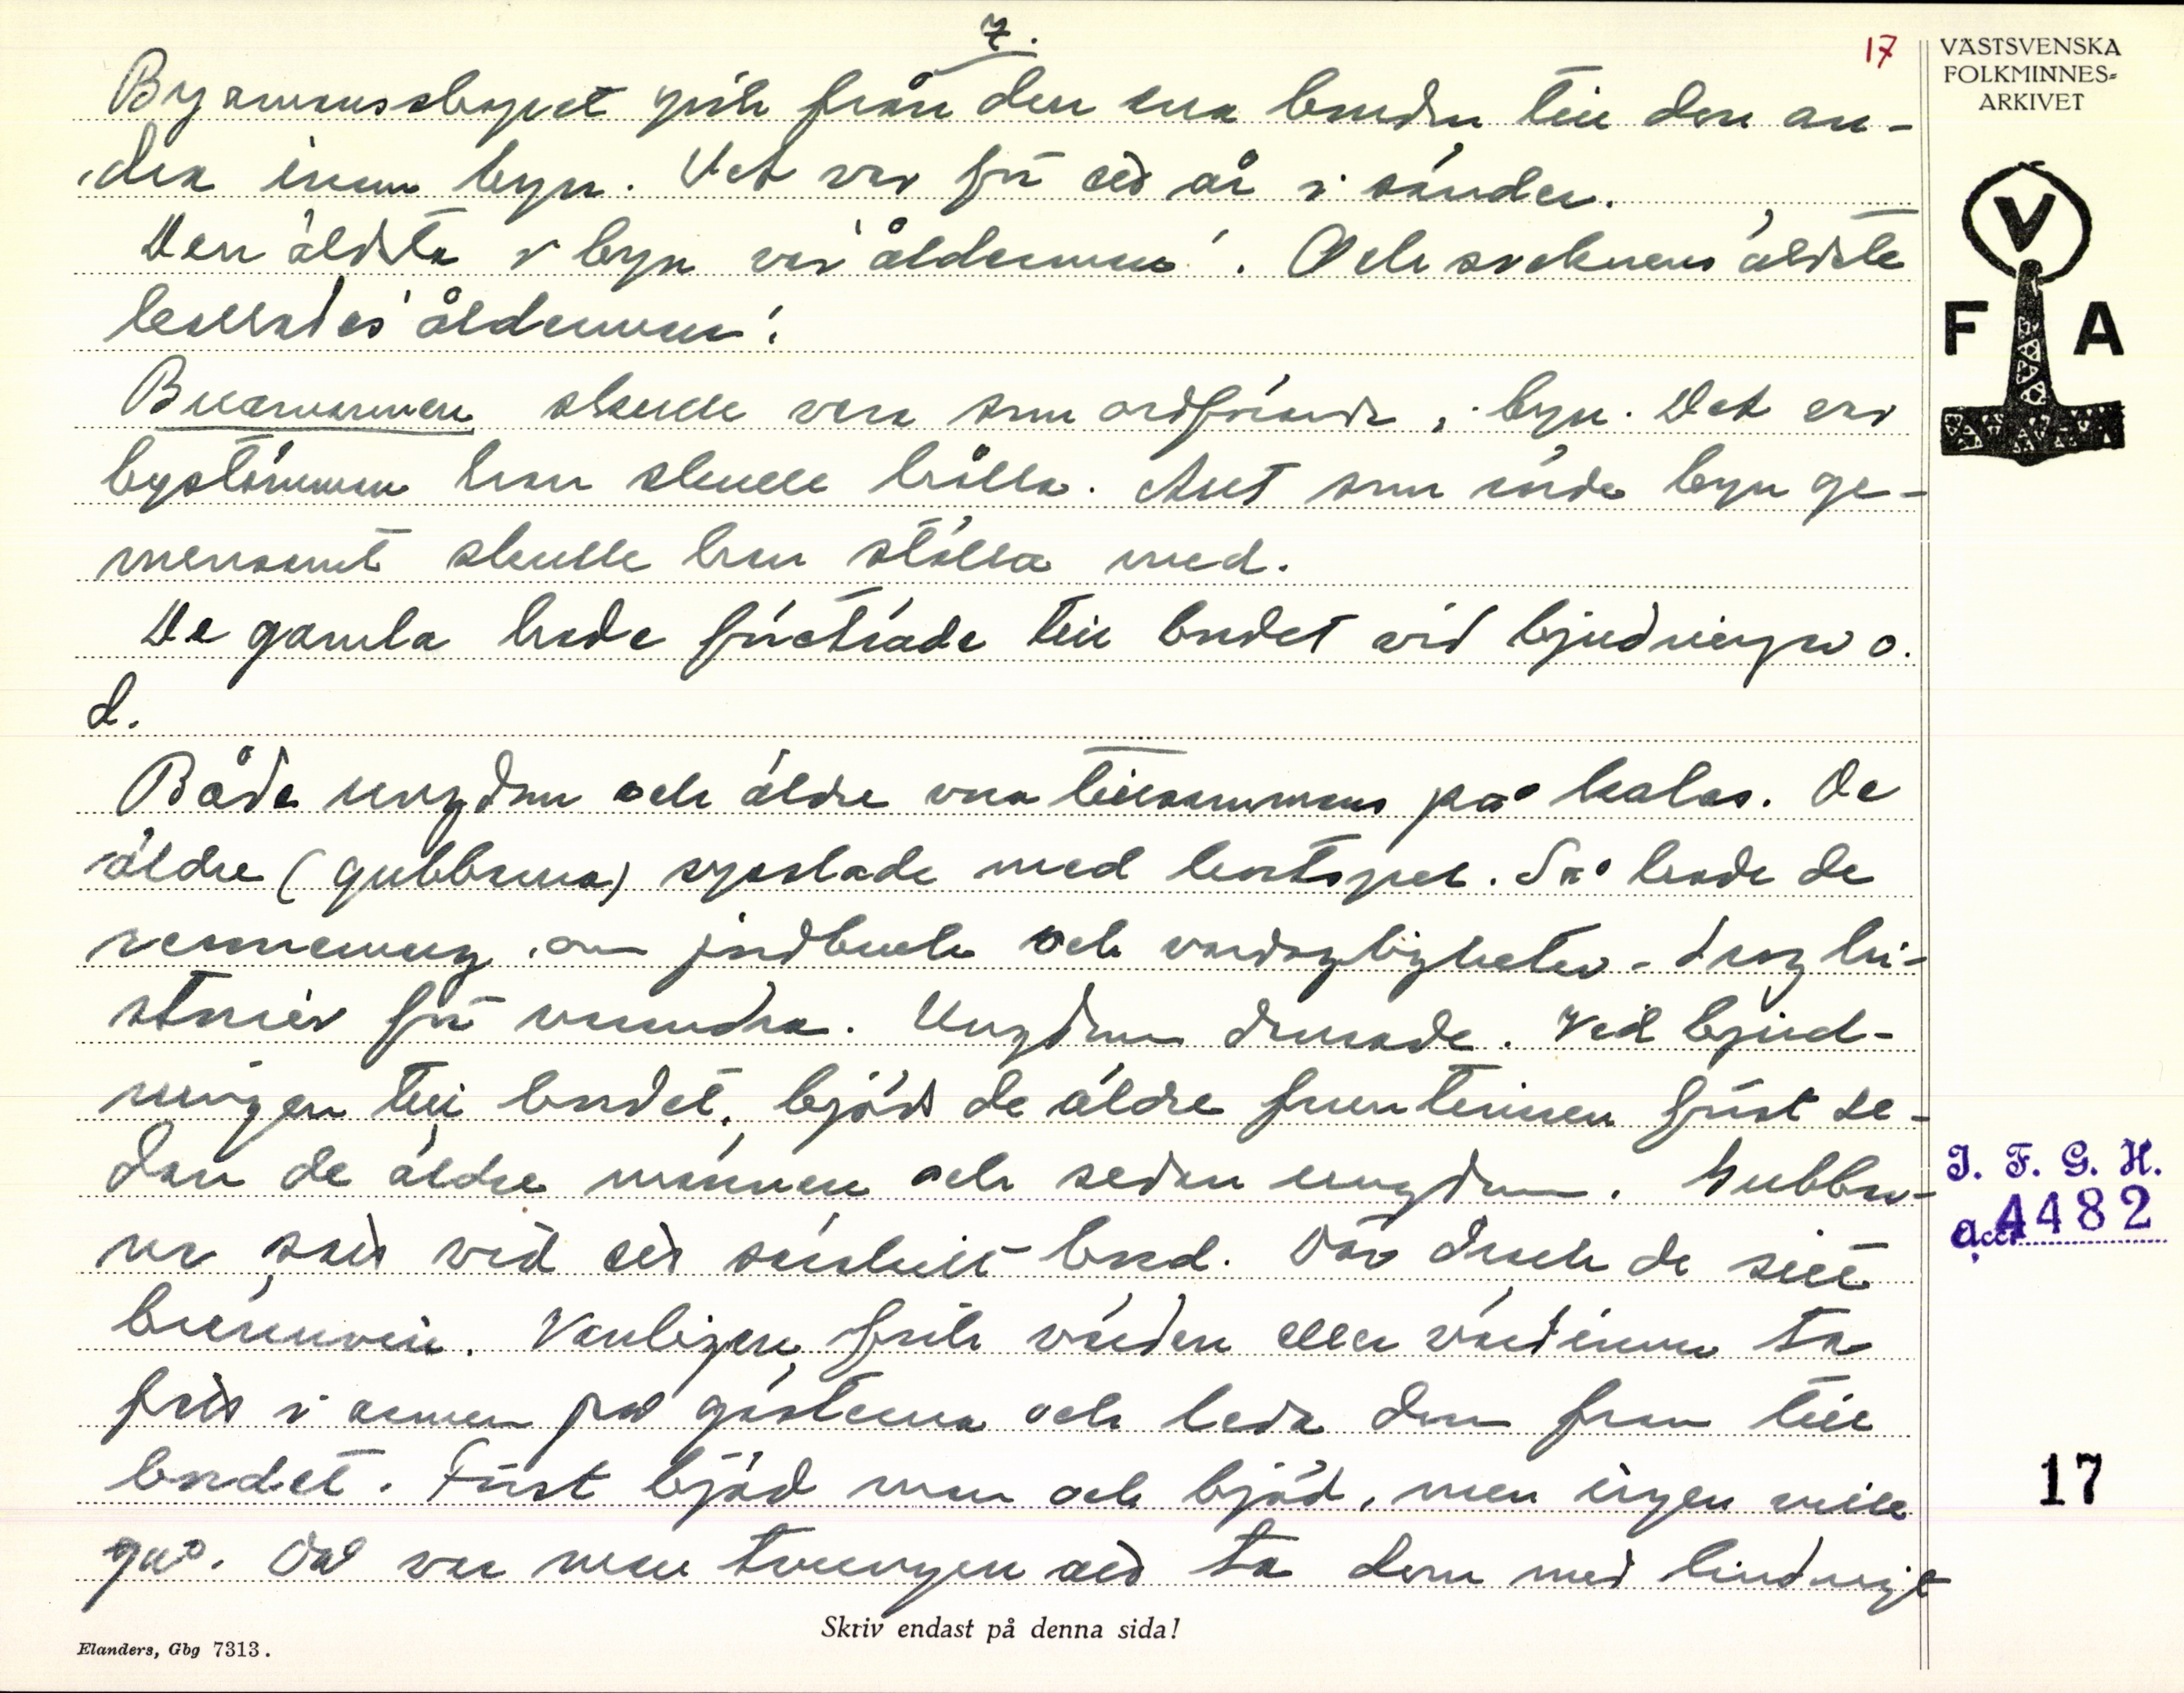 7.
17
Byamansskapet gick från den ena bonden till den an-
dra inom byn. Det var för ett år i sänder.
Den äldsta i byn var 'ålderman'. Och socknens äldste
kallades 'ålderman'.
Byamannen skulle vara som ordförande i byn. Det var
bystämman han skulle hålla. Allt som rörde byn ge-
mensamt skulle han ställa med.
De gamla hade företräde till bordet vid bjudningar o.
d.
Både ungdom och äldre var tillsammans på kalas. De
äldre (gubbarna) sysslade med kortspel. Så hade de
resonemang om jordbruk och vardagligheter - drog hi-
storier för varandra. Ungdom dansade. Vid bjud-
ningen till bordet, bjöds de äldre fruntimren först se-
dan de äldre männen och sedan ungdom. Gubbar-
na satt vid ett särskilt bord. Där drack de sitt
brännvin. Vanligen fick värden eller värdinnan ta
fatt i armen på gästerna och leda dem fram till
bordet. Först bjöd man och bjöd, men ingen ville
gå. Då var man tvungen att ta dem med lindrigt
VÄSTSVENSKA
FOLKMINNES-
ARKIVET
V
F A
I. F. G. H.
Acc. 4482
17
Skriv endast på denna sida!
Elanders, Gbg 7313.